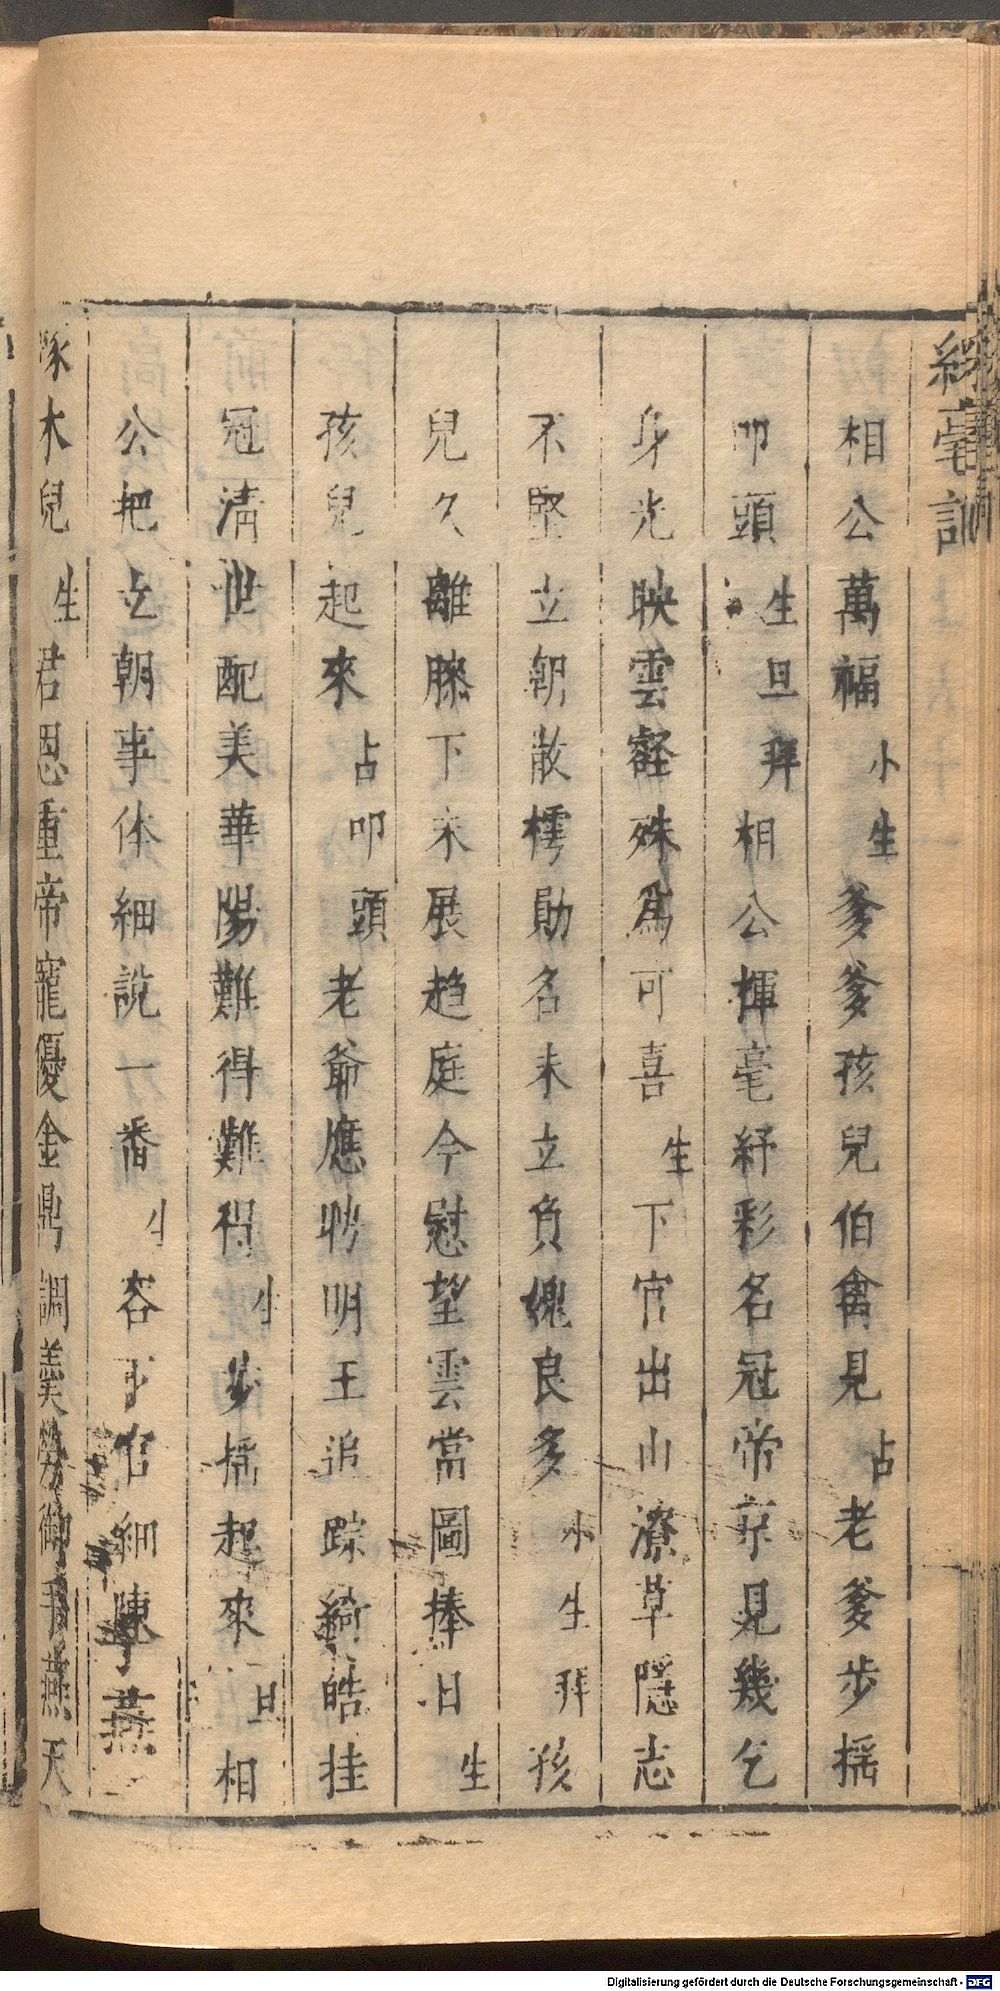 綵毫記
相公萬福 小生 爹爹孩兒伯禽見 占 老爹步搖
叩頭 生旦拜 相公揮毫紓彩名冠帝京見幾乞
身光映雲壑殊爲可喜 生 下官出山潦草隱志
不堅立朝散樗勛名未立負媿良多 小生拜 孩
兒久離膝下未展趋庭今慰望雲當圖捧日 生
孩兒起來 占叩頭 老爺應聘明王追踪綺皓挂
冠清世配美華陽難得難得 生 步搖起來 旦 相
公把立朝事体細說一番 生 容下官細陳 燕
啄木兒 生 君恩重帝寵優金鼎調羹勞御手燕天
Digitalisierung gefördert durch die Deutsche Forschungsgemeinschaft - DFG